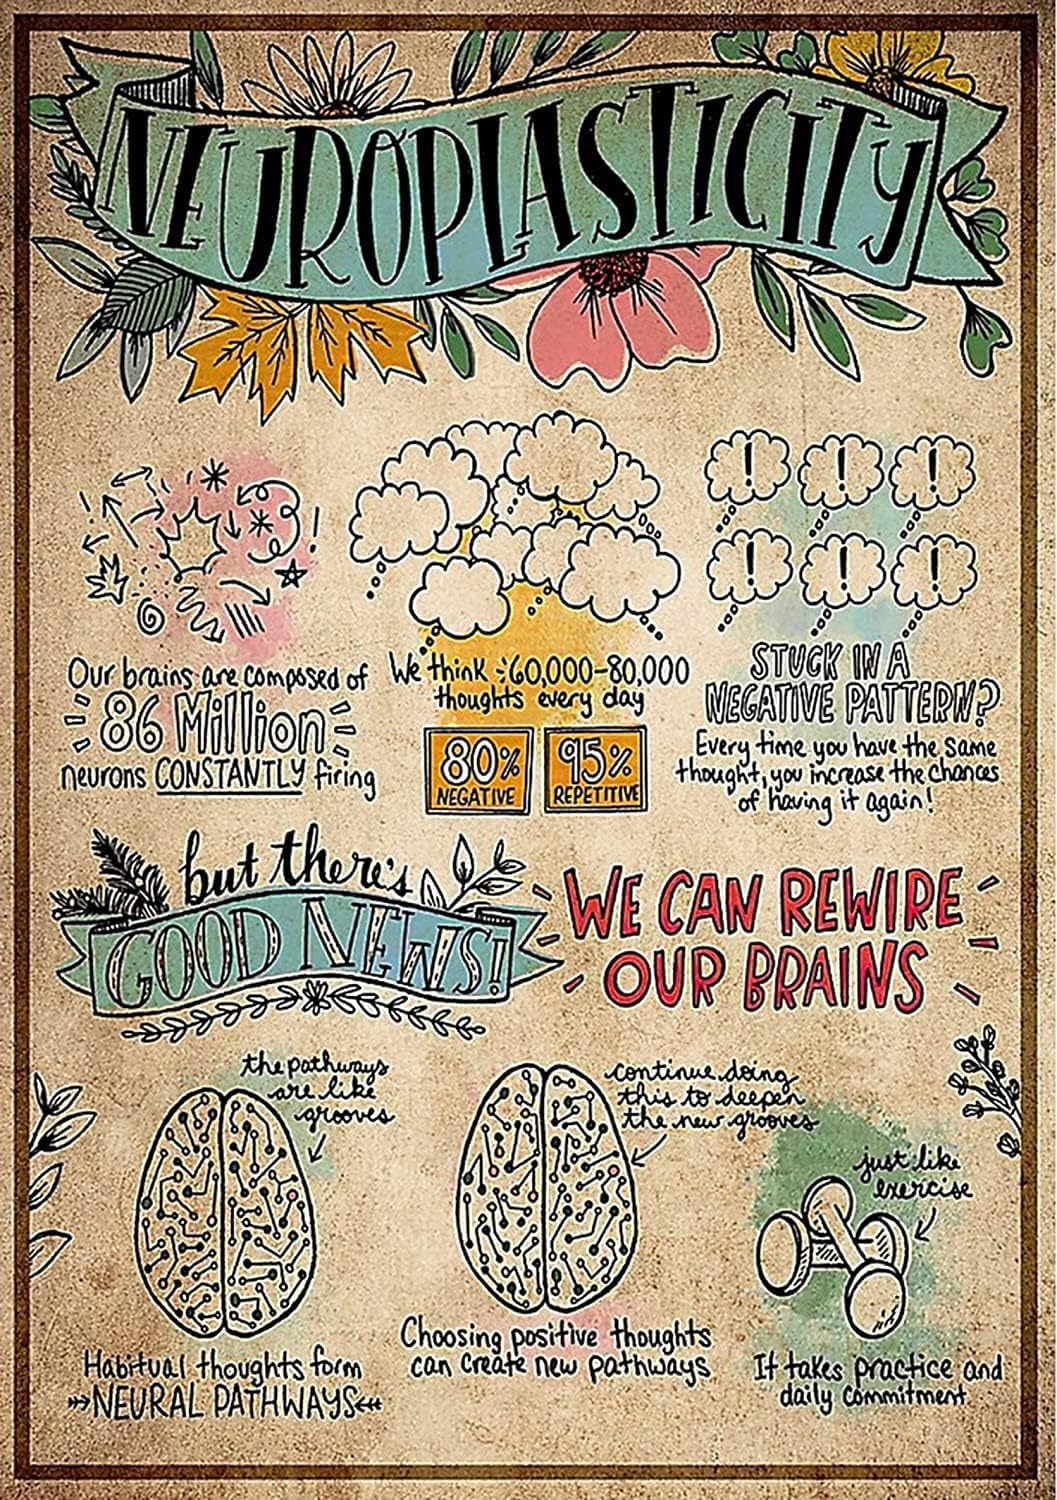 NEUROPLASTICITY
Our brains are composed of
86 Million
neurons CONSTANTLY firing
We think 60,000-80,000
thoughts every day
80%
NEGATIVE
95%
REPETITIVE
STUCK IN A
NEGATIVE PATTERN?
Every time you have the same
thought, you increase the chances
of having it again!
but there's
GOOD NEWS!
WE CAN REWIRE
OUR BRAINS
the pathways
are like
grooves
Habitual thoughts form
NEURAL PATHWAYS
continue doing
this to deepen
the new grooves
Choosing positive thoughts
can create new pathways
just like
exercise
It takes practice and
daily commitment